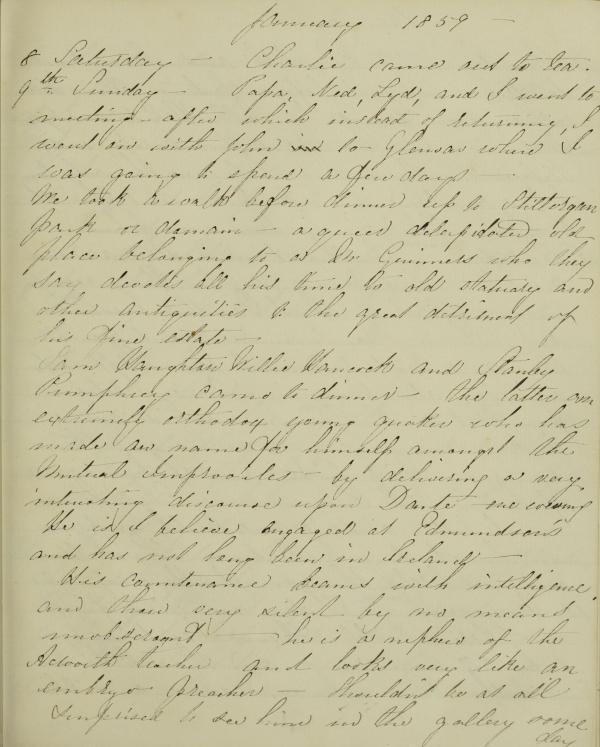 January 1859 —
8 Saturday — Charlie came out to tea.
9th Sunday — Papa, Ned, Lyd, and I went to
meeting – after which instead of returning, I
went on with John to Glenvar where I
was going to spend a few days —
We took a walk before dinner up to Stillorgan
park or domain – a queer delapidated old
place belonging to a Mr Guinness who they
say devotes all his time to old statuary and
other antiquities to the great detriment of
his fine estate —
Sam Haughton Willie Hancock and Stanley
Pumphrey came to dinner – the latter an
extremely orthodox young quaker who has
made a name for himself amongst the
Mutual improvites – by delivering a very
interesting discourse upon Dante one evening
He is I believe engaged at Edmundson's
and has not long been in Ireland —
His countenance beams with intelligence
and though very silent by no means
— he is a nephew of the
Ackworth teacher and looks very like an
embryo preacher – Shouldn't be at all
surprised to see him in the gallery some
day